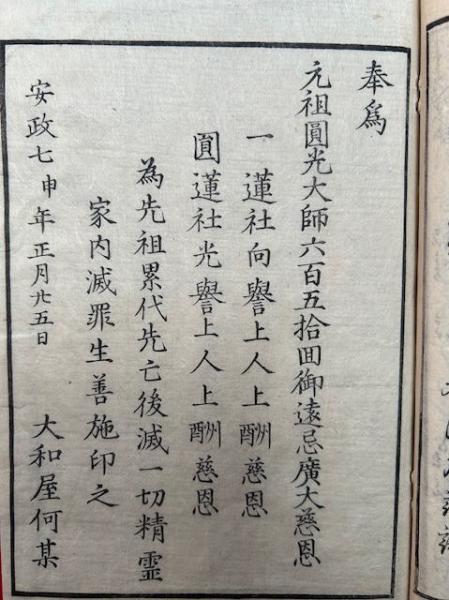 奉爲
元祖圓光大師六百五拾回御遠忌廣大慈恩
一蓮社向譽上人上酬慈恩
圓蓮社光譽上人上酬慈恩
為先祖累代先亡後滅一切精霊
家内滅罪生善施印之
安政七申年正月廿五日 大和屋何某